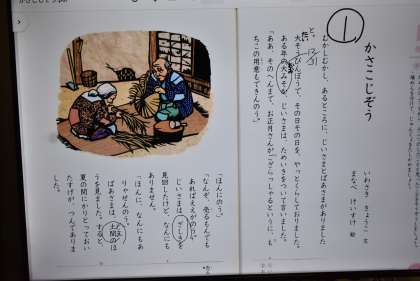 かさこじぞう
1
かさこじぞう
いわさき きょうこ 文
まなべ けいすけ 絵
むかしむかし、あるところに、じいさまとばあさまがありました
と。
大そうびんぼうで、その日その日を、やっとくらしておりました。
ある年の大みそか、じいさまは、ためいきをついて言いました。
「ああ、そのへんまで、お正月さんがござらっしゃるというに、も
ちこの用意もできんのう。」
「ほんにのう。」
「なんぞ、売るもんでも
あればええがのう。」
じいさまは、ざしきを
見回したけど、なんにも
ありません。
「ほんに、なんにもあ
りゃせんのう。」
ばあさまは、土間のほ
うを見ました。すると、
夏の間にかりとっておい
たすげが、つんでありま
した。